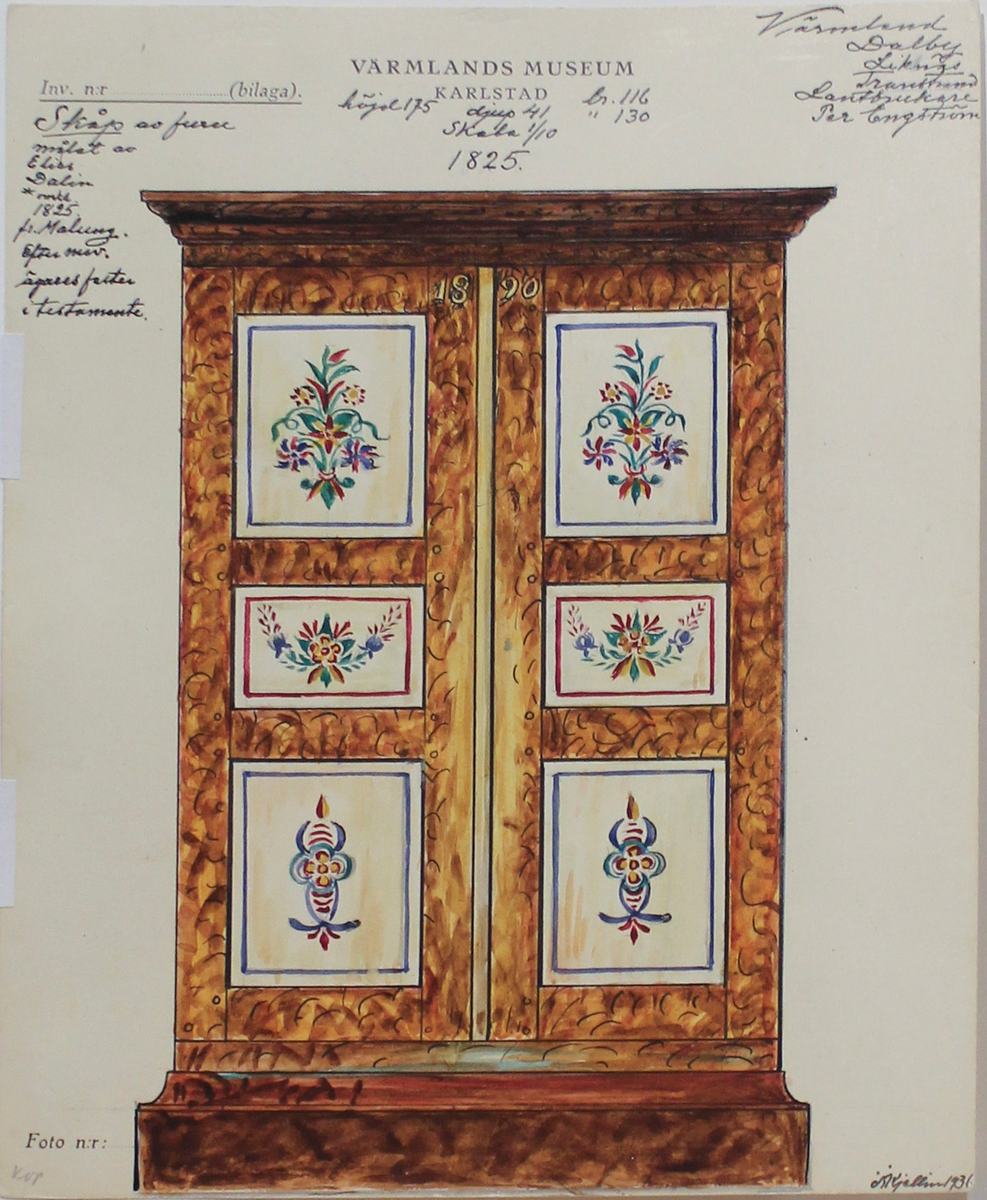 Värmland
Dalby
Transtrand
Lantbrukare
Per Engström
VÄRMLANDS MUSEUM
KARLSTAD
Inv. n:r (bilaga).
höjd 175 djup 41 br. 116
" 130
Skala 1/10
1825.
Skåp av furu
målat av
Elias
Dalin
1825
fr. Malung.
Efter nuv.
ägares faster
i testamente.
18 90
Foto n:r:
Kjellin 1931